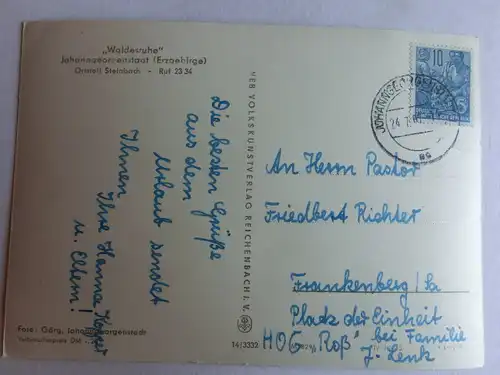 „Waldesruhe"
Johanngeorgenstadt (Erzgebirge)
Ortsteil Steinbach - Ruf 2334
Die besten Grüße
aus dem
Urlaub sendet
Ihnen
Ihre Hanna
u. Eltern!
VEB VOLKSKUNSTVERLAG REICHENBACH I. V.
10
JOHANNGEORGENSTADT
24.
An Herrn Pastor
Friedbert Richter
Frankenberg/Sa
Platz der Einheit
HOG „Roß" bei Familie
J. Lenk
Foto: Görg, Johanngeorgenstadt
14/3333